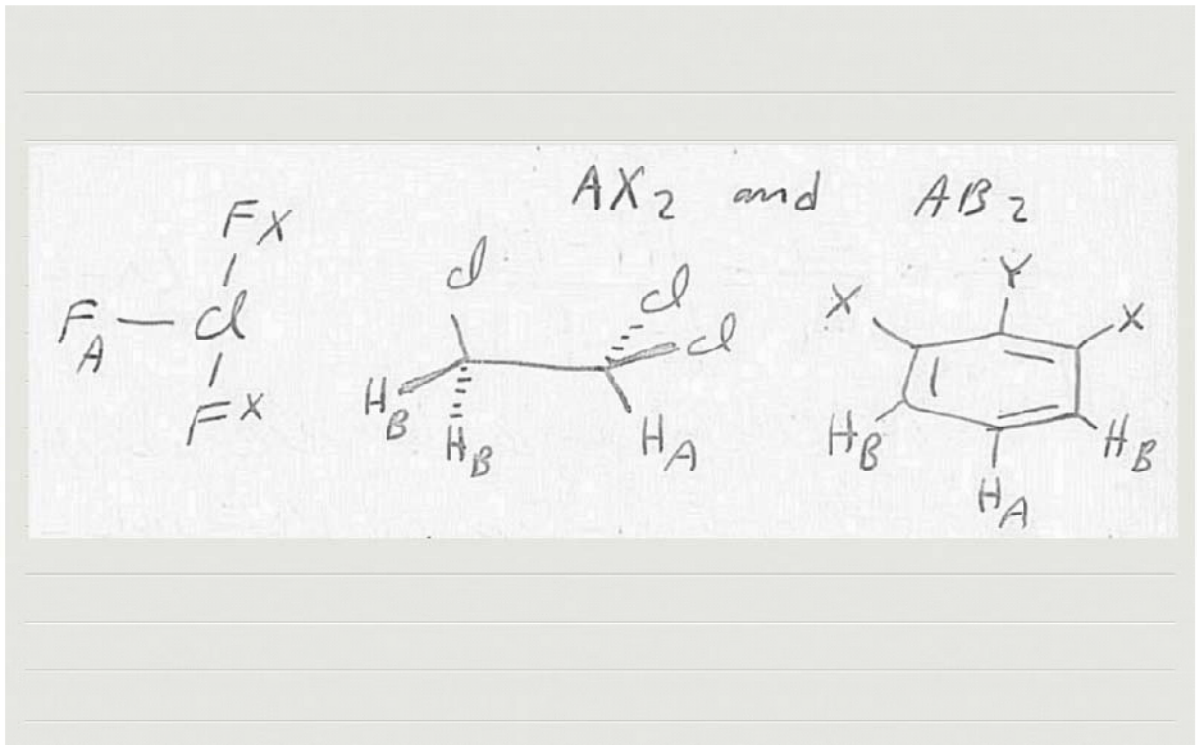 AX2 and AB2
FX
FA Cl
FX
Cl
Cl
Cl
HB
HB
HA
Y
X
X
HB
HB
HA